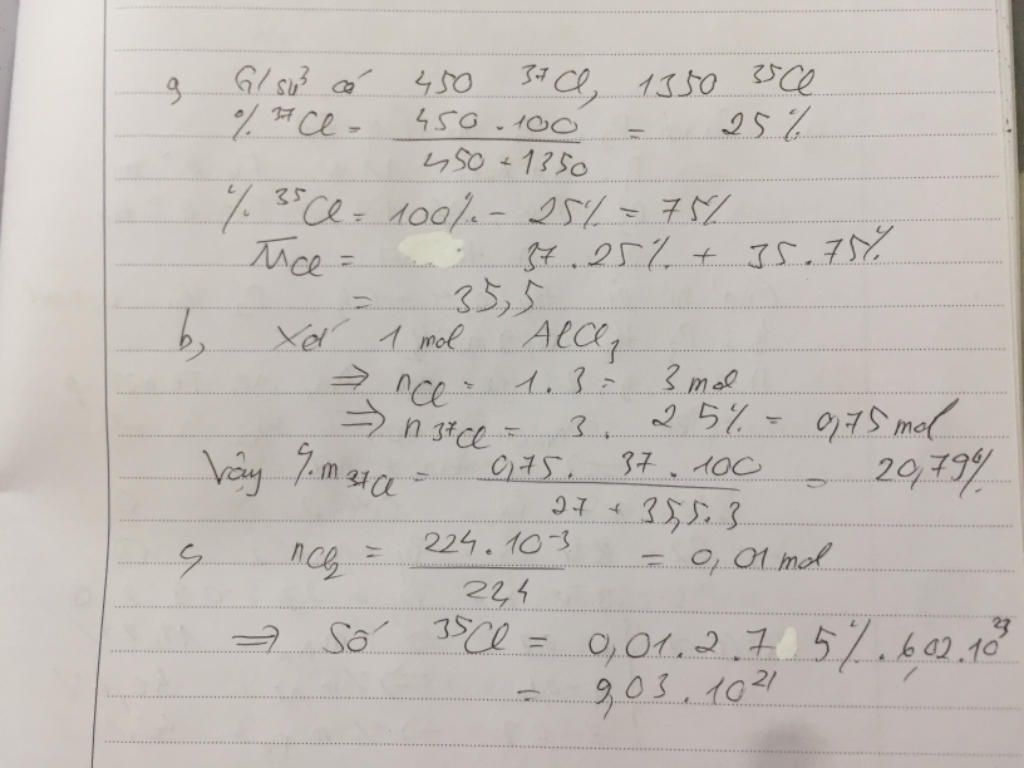 a, G/sử có 450 ³⁷Cl, 1350 ³⁵Cl
% ³⁷Cl = 450 . 100 / 450 + 1350 = 25%
% ³⁵Cl = 100% - 25% = 75%
M̅Cl = 37 . 25% + 35 . 75%
= 35,5
b, Xét 1 mol AlCl₃
⇒ nCl = 1 . 3 = 3 mol
⇒ n³⁷Cl = 3 . 25% = 0,75 mol
Vậy %m³⁷Cl = 0,75 . 37 . 100 / 27 + 35,5 . 3 = 20,79%
c, nCl₂ = 224 . 10⁻³ / 22,4 = 0,01 mol
⇒ Số ³⁵Cl = 0,01 . 2 . 7 5% . 6,02 . 10²³
= 9,03 . 10²¹